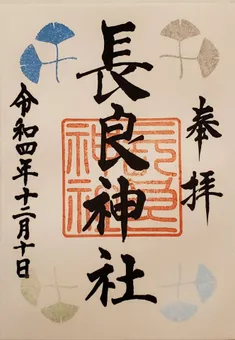 奉拝
長良神社
長良神社
令和四年十二月十日